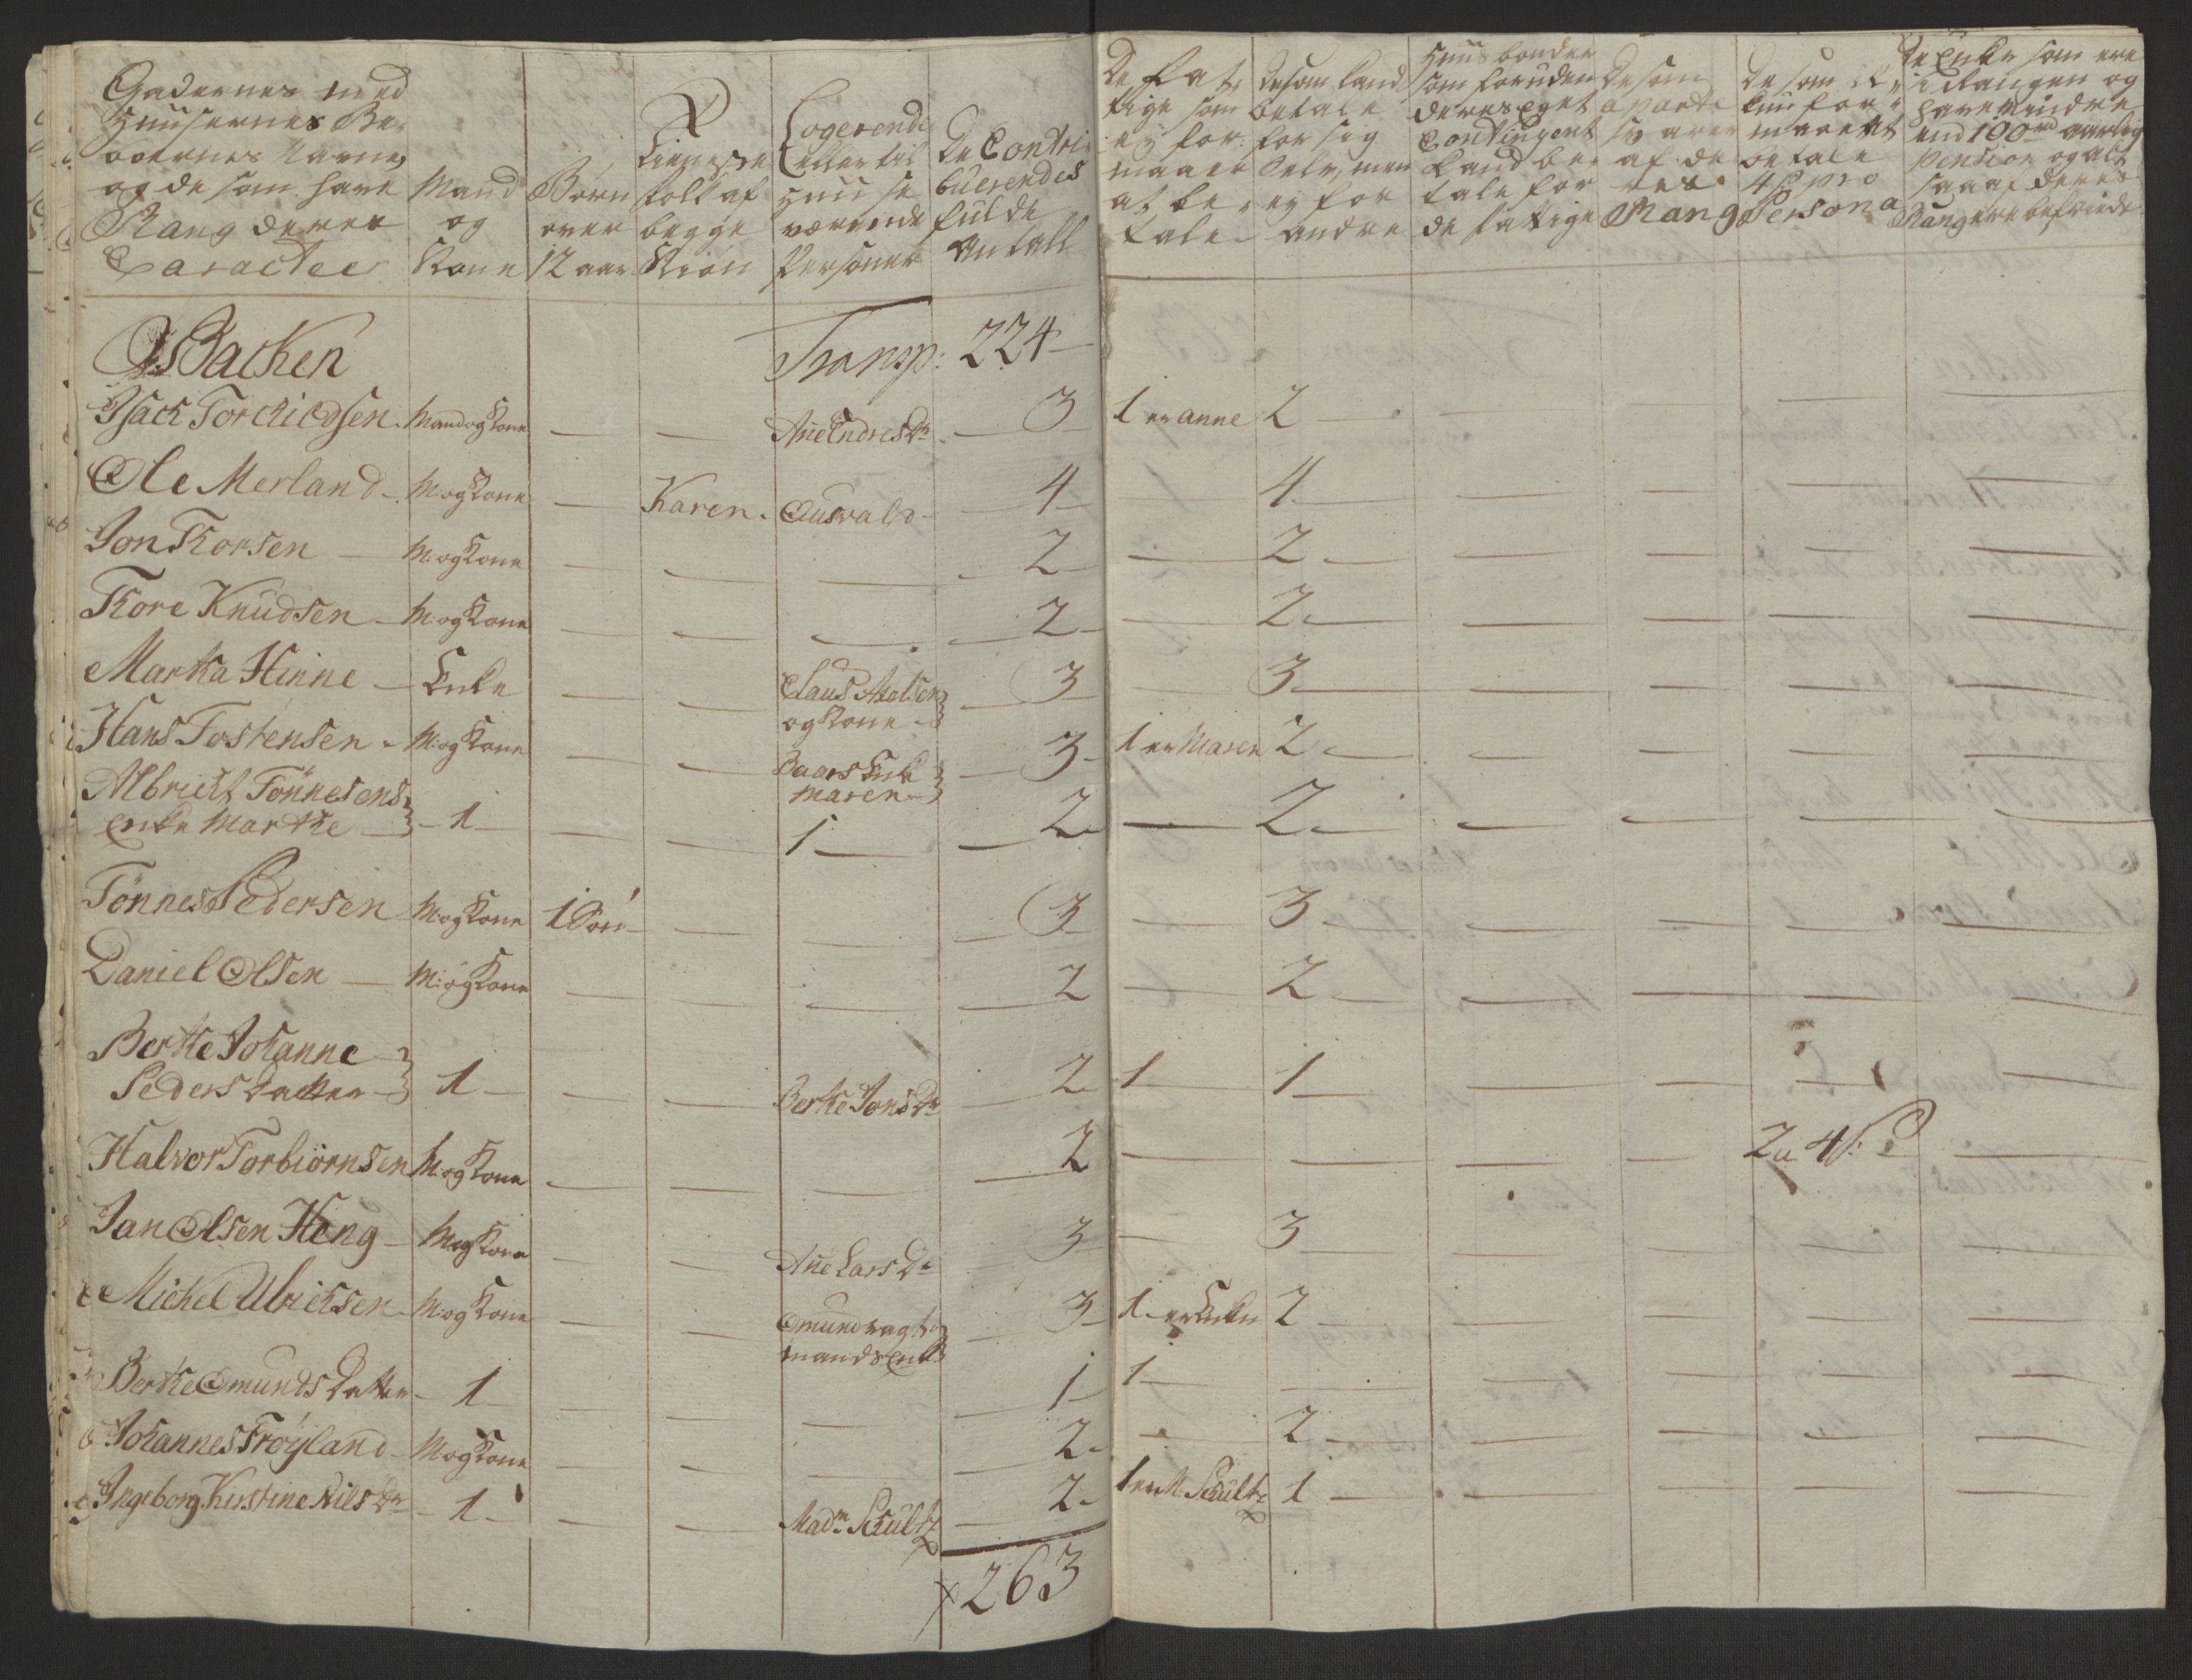 Gadernes med
Huusernes Be-
boernes Navne,
og de som have
Rang deres
Caracteer
Mand
og
Kone
Børn
over
12 aar
Tieneste
folk af
begge
Kiøn
Logerende
eller til
Huuse
værende
Personer
De Contri-
buerendes
fulde
Antall
De fat-
tige som
ey for-
maaer
at be-
tale
De som kand
betale
for sig
selv, men
ey for
andre
Huusbonder
som foruden
deres eget
Contingent
kand be-
tale for
de fattige
De som
aparte
svarer
af de-
res
Rang
De som
kun for-
maaer at
betale
4 ß pro
Persona
De Enker som ere
i Rangen og
have mindre
end 100 rd aarlig
Pension og alt
saa af deres
Rang ere befriede
Backen
Transp: 224
Isach Torchildsen Mand og Kone — — Añe Endres Dr — 3 1 er Anne 2
Ole Merland M: og Kone — Karen Ousvald 4 4
Jon Thorsen M: og Kone — — — 2 — 2
Thore Knudsen M: og Kone — — — 2 — 2
Martha Hinne Enke — — Claus Axelsen
og Kone 3 3
Hans Tostensen M: og Kone — — Baars Enke
Maren 3 1 er Maren 2
Albricht Tönnesens
Enke Marthe 1 — — 1 2 — 2
Tönnes Pedersen M: og Kone 1 Søn — — 3 — 3
Daniel Olsen M: og Kone — — — 2 — 2
Berthe Johanne
Peders Datter 1 — — Berthe Jons Dr 2 1 1
Halvor Torbiörnsen M: og Kone — — — 2 — — — — 2 a 4 ß
Jan Olsen Heng M: og Kone — — Añe Lars Dr 3 — 3
Michel Ulrichsen M: og Kone — — Omund vagt-
mands Enke 3 1 er Enken 2
Berthe Omunds Datter 1 — — — 1 1 —
Johannes Fröyland M: og Kone — — — 2 — 2
Ingeborg Kirstine Nils Dr 1 — — Madm Schultz 2 1 er M. Schultz 1
263